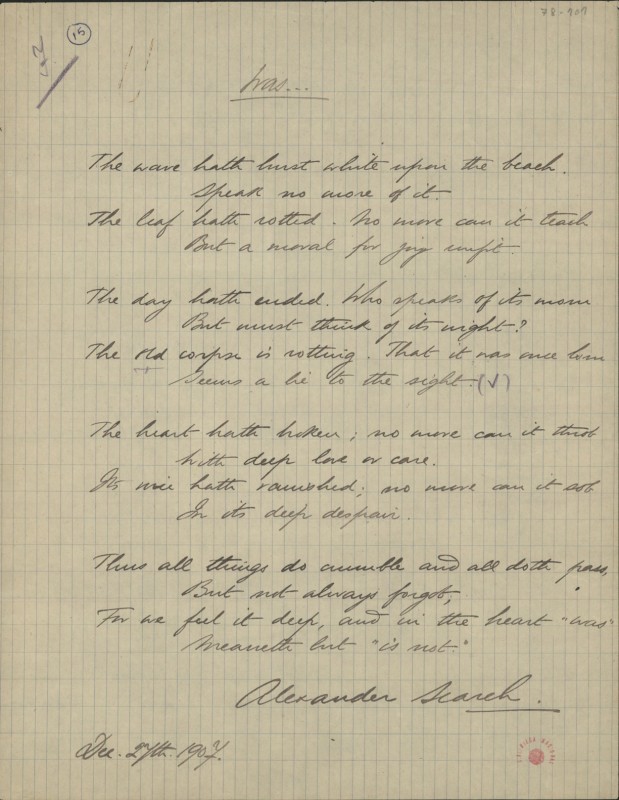 78-707
15
Was...
The wave hath burst white upon the beach.
Speak no more of it.
The leaf hath rotted. No more can it teach
But a moral for joy unfit.
The day hath ended. Who speaks of its morn
But must think of its night?
The old corpse is rotting. That it was once born
Seems a lie to the sight. (√)
The heart hath broken; no more can it throb
With deep love or care.
Its voice hath vanished; no more can it sob
In its deep despair.
Thus all things do crumble and all doth pass,
But not always forgot,
For we feel it deep, and in the heart "was"
Meaneth but "is not."
Alexander Search.
Dec. 27th. 1907.